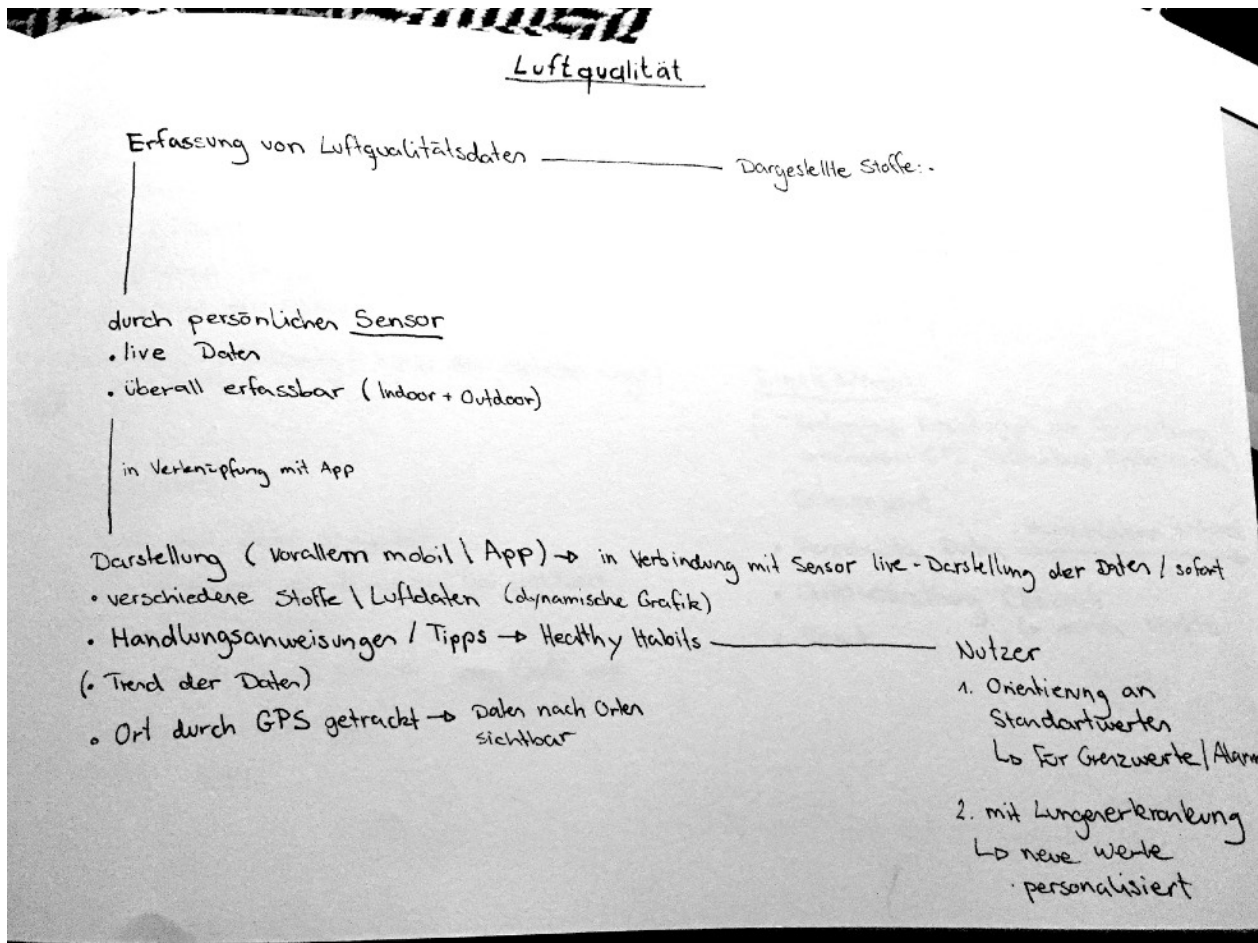 Luftqualität
Erfassung von Luftqualitätsdaten
Dargestellte Stoffe:.
durch persönlichen Sensor
. live Daten
. überall erfassbar (Indoor + Outdoor)
in Verknüpfung mit App
Darstellung (vorallem mobil \ App) → in Verbindung mit Sensor live-Darstellung der Daten / sofort
• verschiedene Stoffe \ Luftdaten (dynamische Grafik)
• Handlungsanweisungen / Tipps → Healthy Habits
(• Trend der Daten)
• Ort durch GPS getrackt → Daten nach Orten
sichtbar
Nutzer
1. Orientierung an
Standartwerten
↳ Für Grenzwerte / Alarm
2. mit Lungenerkrankung
↳ neue Werte
personalisiert